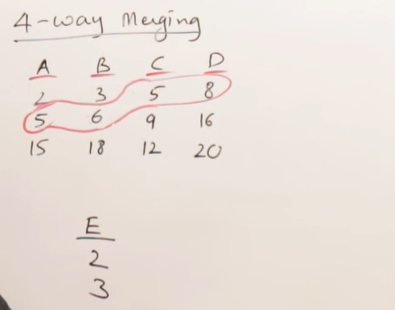 4-way Merging
A B C D
2 3 5 8
5 6 9 16
15 18 12 20
E
2
3